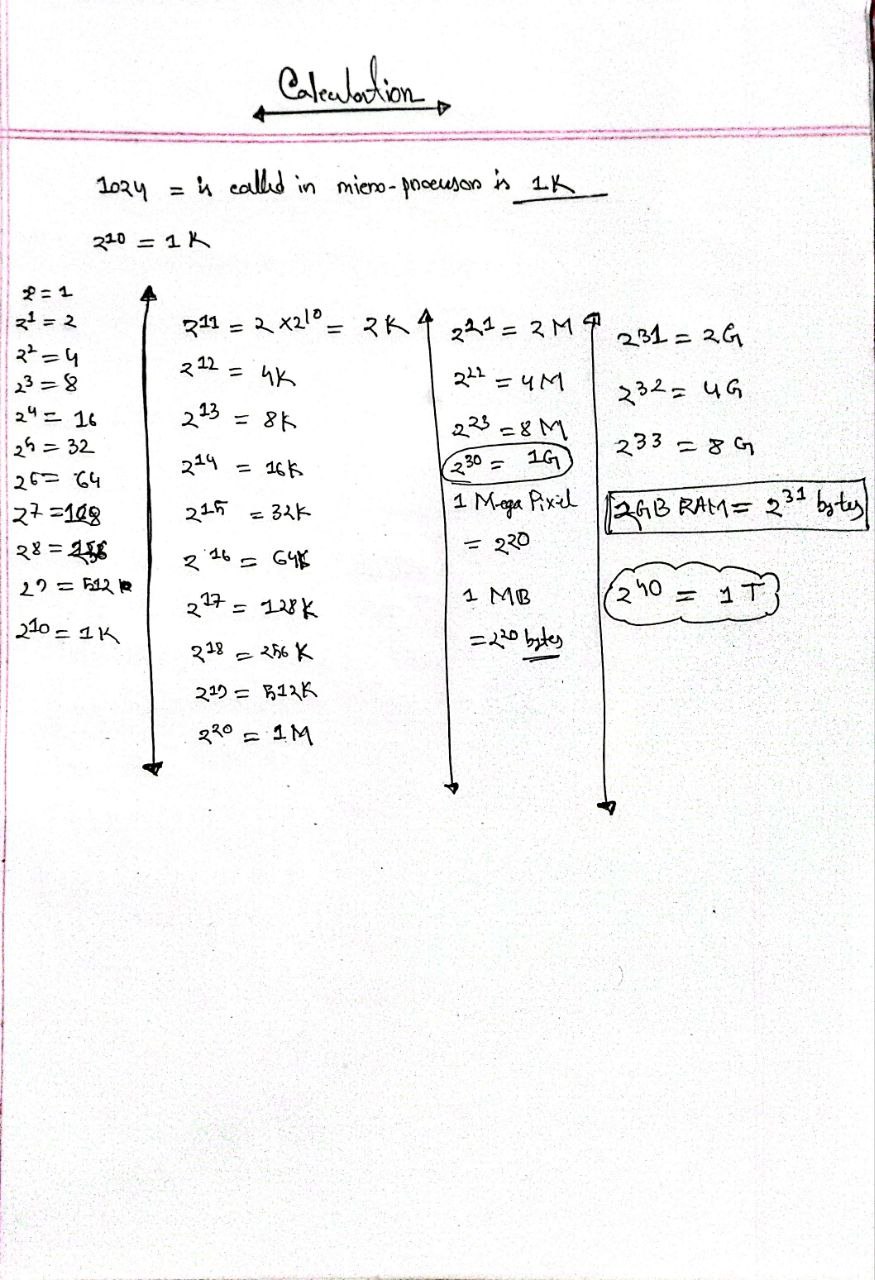 Calculation
1024 = is called in micro-processors is 1K
2¹⁰ = 1K
2¹ = 2
2² = 4
2³ = 8
2⁴ = 16
2⁵ = 32
2⁶ = 64
2⁷ = 128
2⁸ = 256
2⁹ = 512
2¹⁰ = 1K
2¹¹ = 2 x 2¹⁰ = 2K
2¹² = 4K
2¹³ = 8K
2¹⁴ = 16K
2¹⁵ = 32K
2¹⁶ = 64K
2¹⁷ = 128K
2¹⁸ = 256K
2¹⁹ = 512K
2²⁰ = 1M
2²¹ = 2M
2²² = 4M
2²³ = 8M
2³⁰ = 1G
1 Mega Pixel
= 2²⁰
1 MB
= 2²⁰ bytes
2³¹ = 2G
2³² = 4G
2³³ = 8G
2GB RAM = 2³¹ bytes
2⁴⁰ = 1T